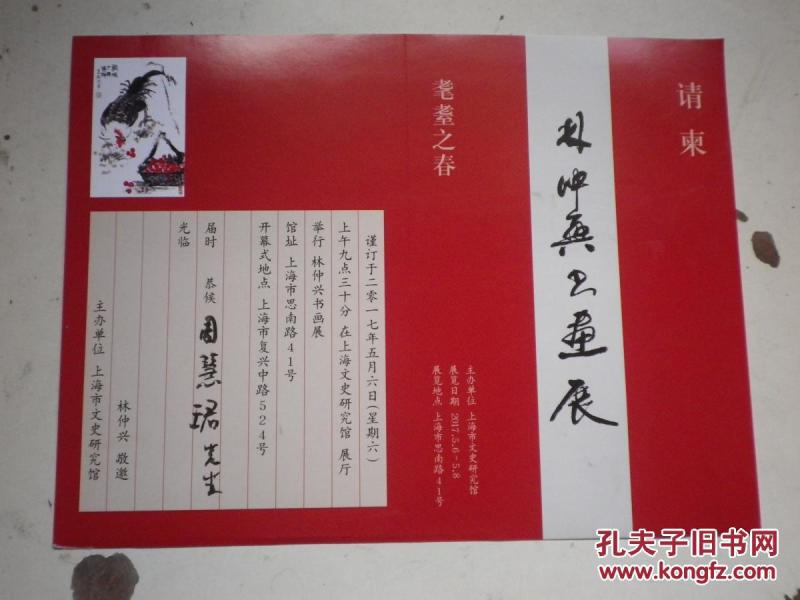 请柬
林仲兴书画展
耄耋之春
主办单位 上海市文史研究馆
展览日期 2017.5.6-5.8
展览地点 上海市思南路41号
谨订于二零一七年五月六日(星期六)
上午九点三十分 在上海文史研究馆 展厅
举行 林仲兴书画展
馆址 上海市思南路41号
开幕式地点 上海市复兴中路524号
届时 恭候 周慧珺先生
光临
林仲兴 敬邀
主办单位 上海市文史研究馆
孔夫子旧书网
www.kongfz.com